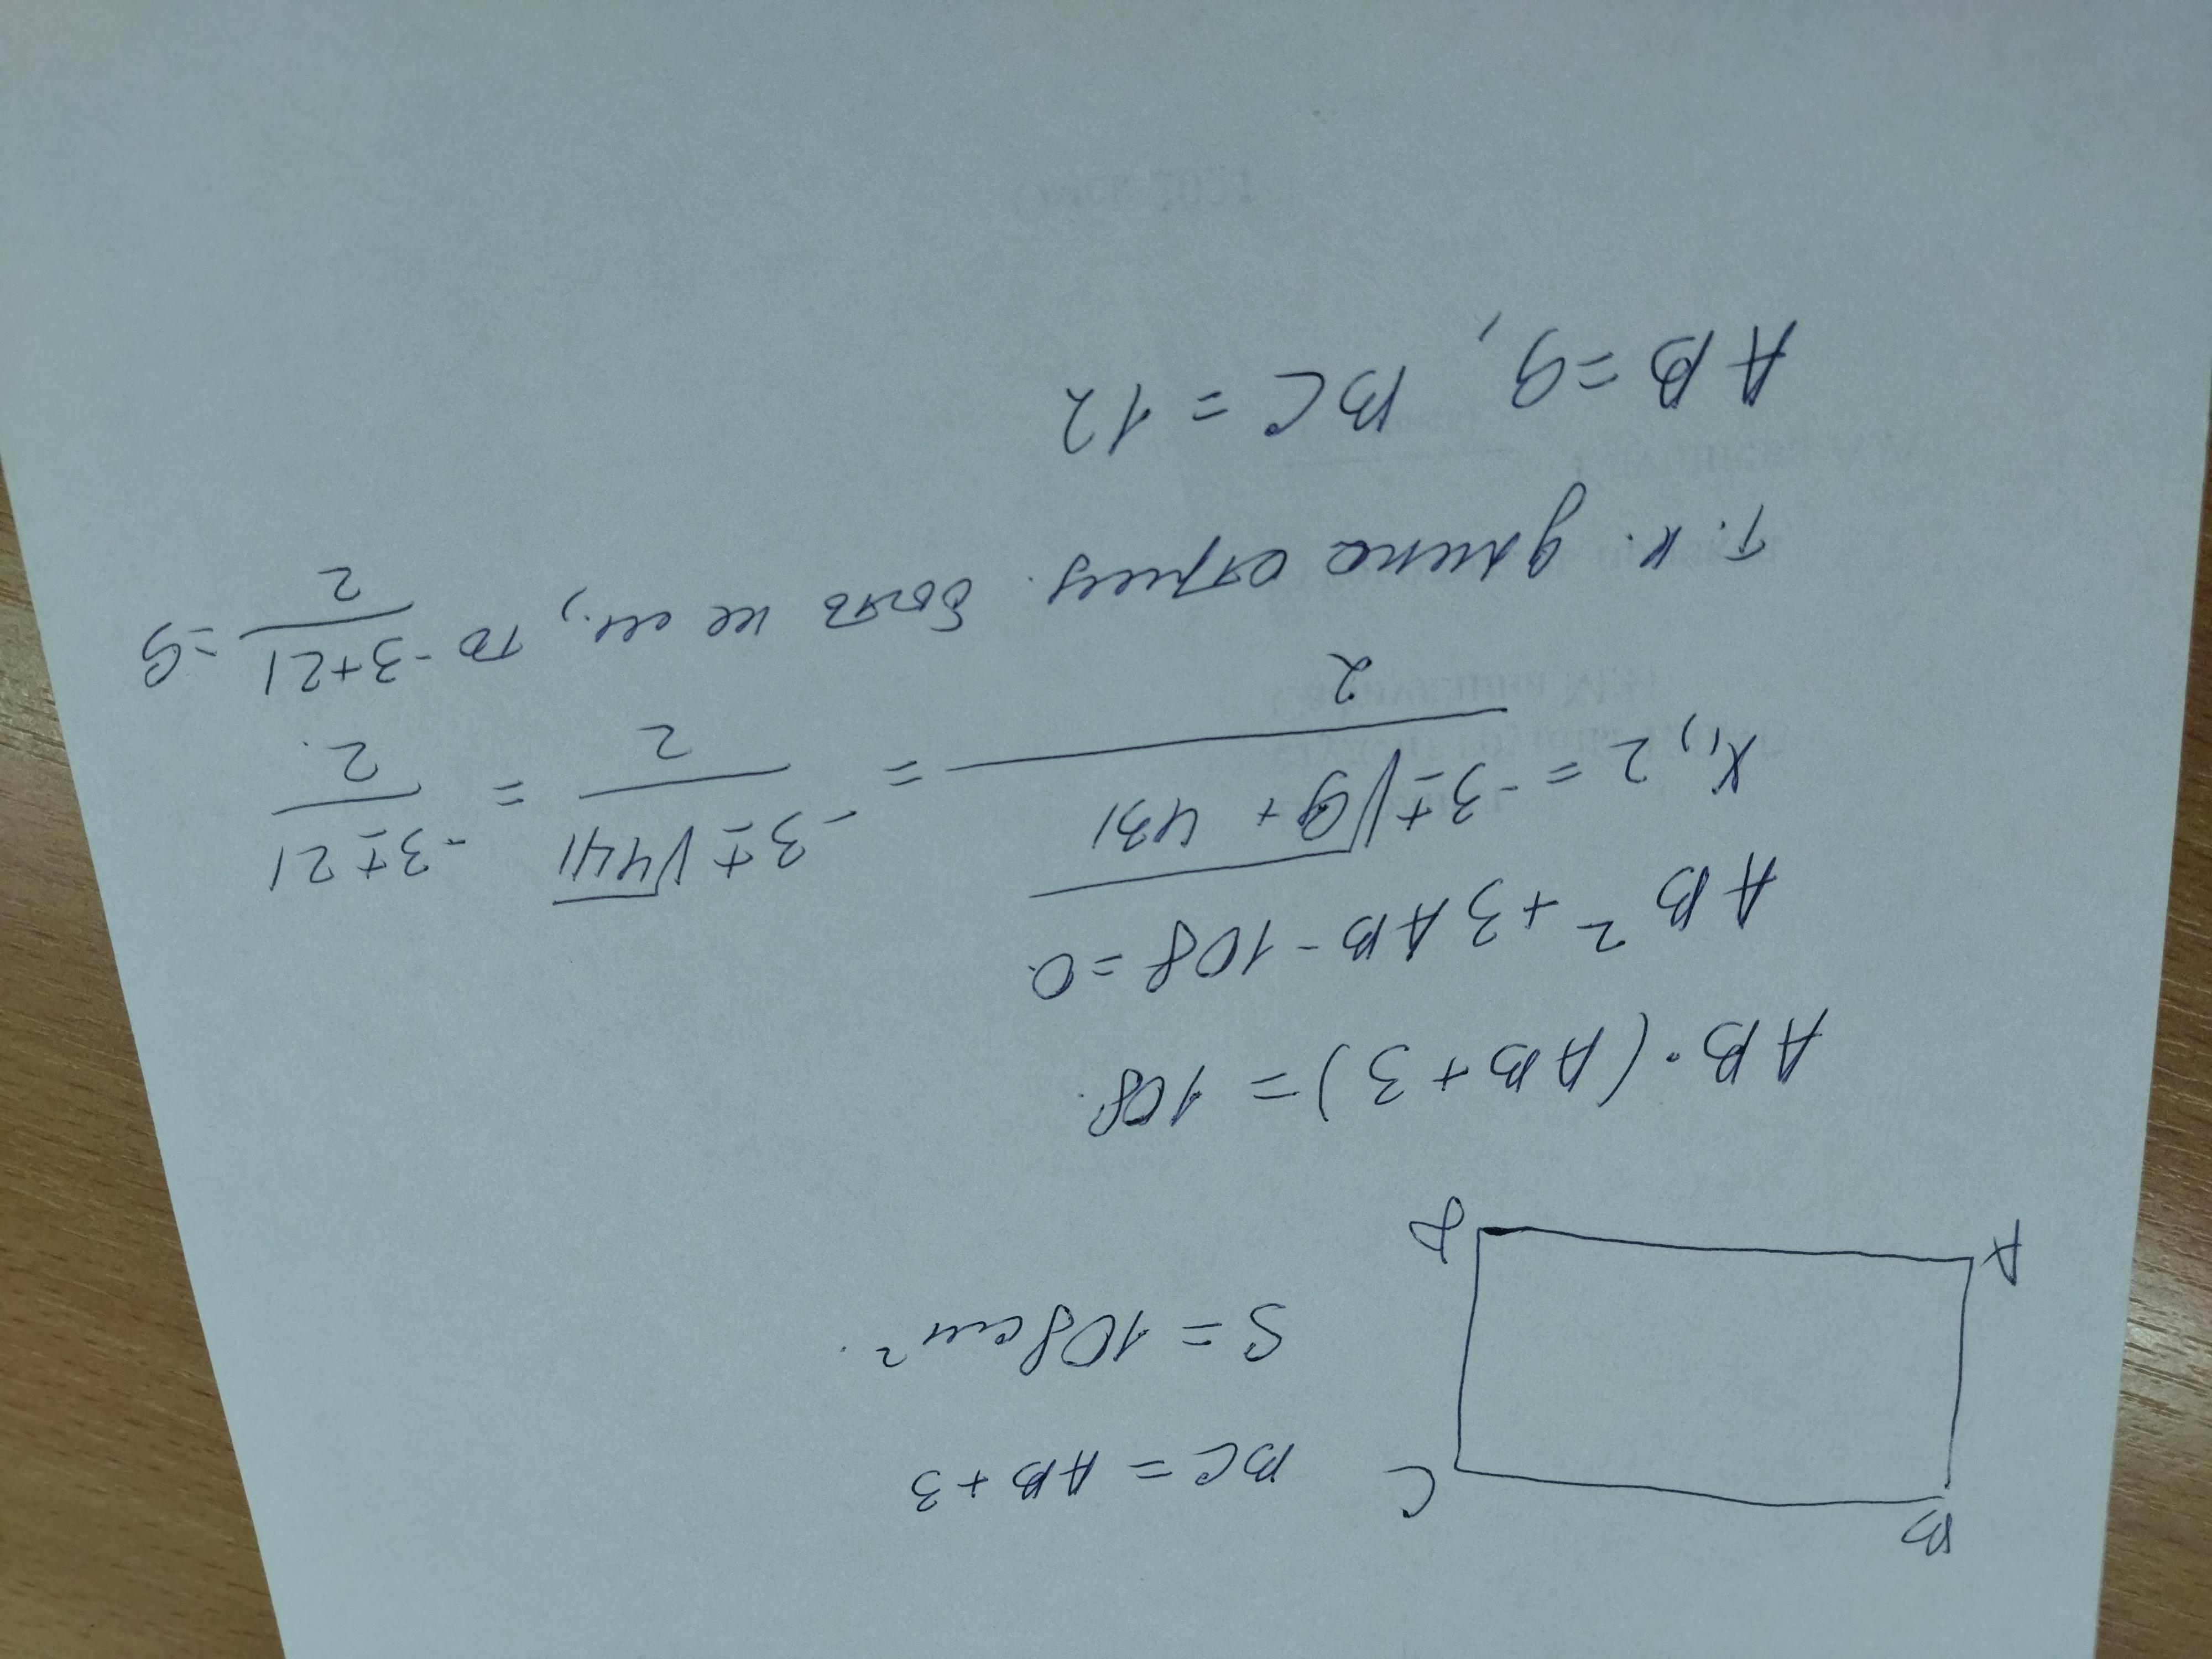 B
C
BC = AB + 3
S = 108 см².
A
D
AB · (AB + 3) = 108.
AB² + 3AB - 108 = 0.
x₁,₂ = (-3 ± √(9 + 431))/2 = (-3 ± √441)/2 = (-3 ± 21)/2.
Т.к. длина отриц. быть не мож., то (-3 + 21)/2 = 9
AB = 9, BC = 12